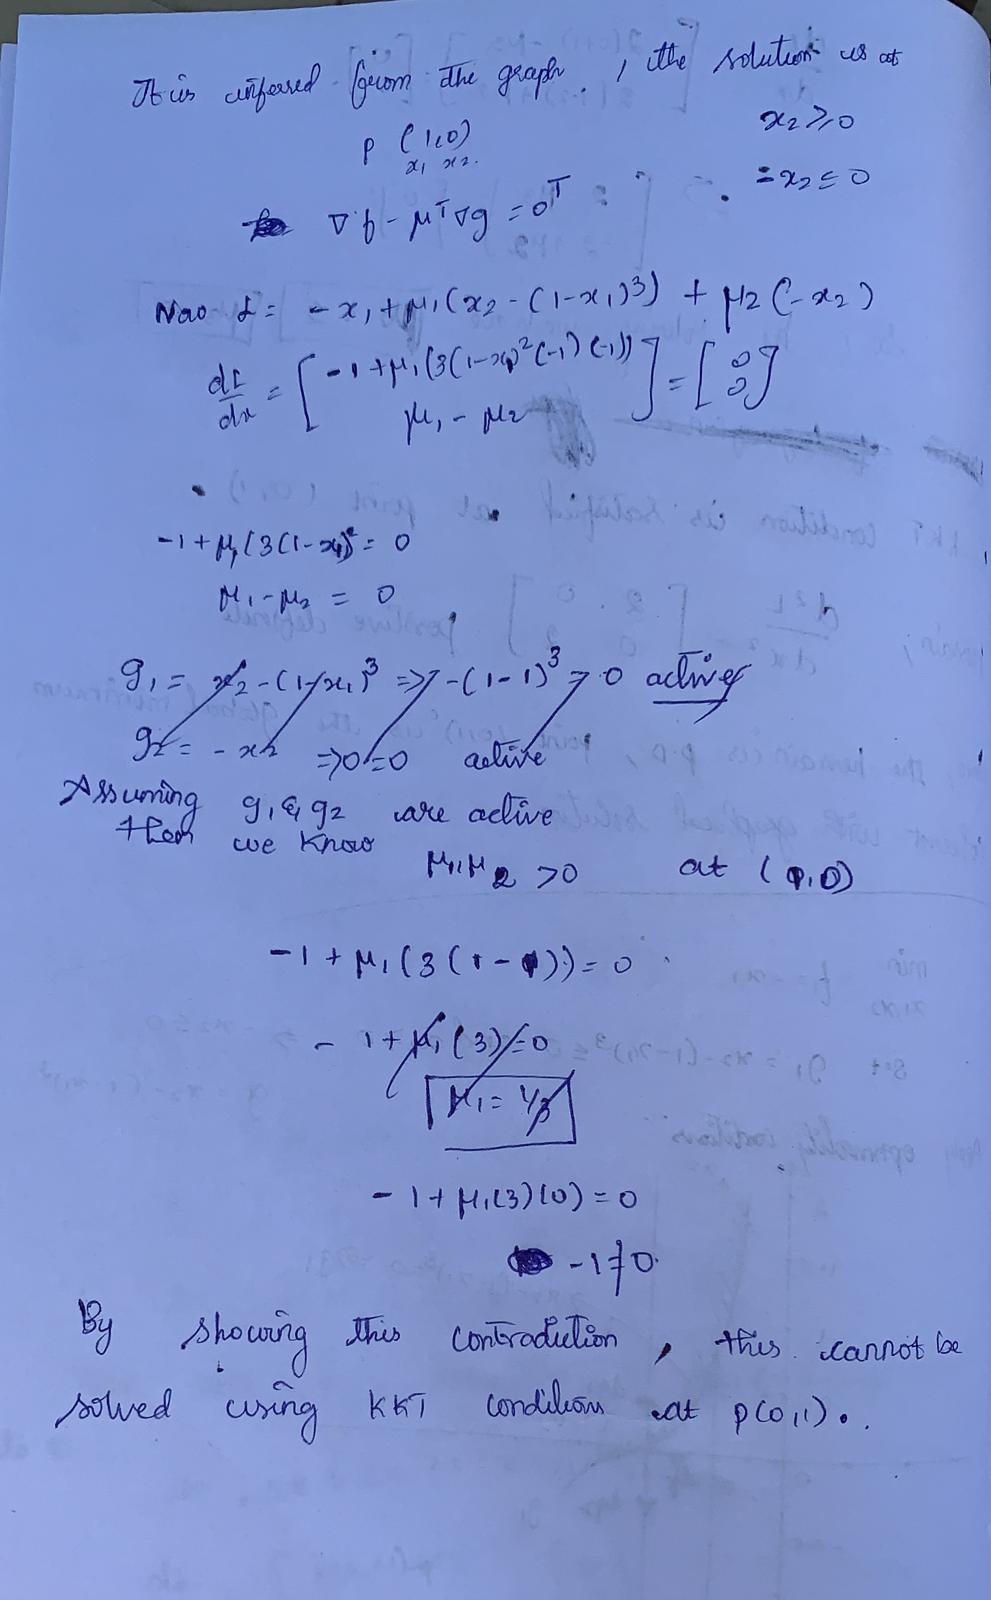 It is inferred from the graph, the solution is at
P (1,0) x2 ≥ 0
x1 x2. = x2 ≤ 0
∇f - μᵀ∇g = 0ᵀ
Now L = -x1 + μ1(x2 - (1-x1)³) + μ2(-x2)
dL/dx = [-1 + μ1(3(1-x1)²(-1)(-1)) ; μ1 - μ2] = [0 ; 0]
-1 + μ1(3(1-x1)² = 0
μ1 - μ2 = 0
g1 = x2 - (1-x1)³ => -(1-1)³ = 0 active
g2 = -x2 => 0 = 0 active
Assuming g1 & g2 are active
then we know μ1, μ2 > 0 at (1,0)
-1 + μ1(3(1-1)) = 0
-1 + μ1(3) = 0
μ1 = 1/3
-1 + μ1(3)(0) = 0
-1 ≠ 0.
By showing this contradution, this cannot be
solved using KKT conditions at p(0,1).